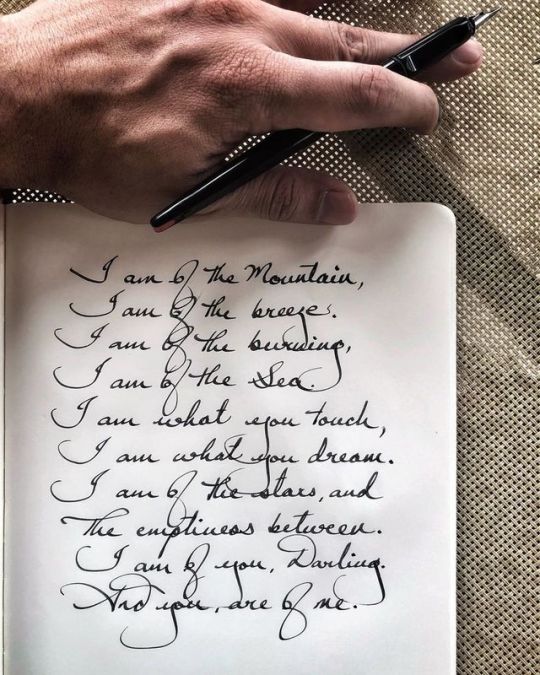 I am of the Mountain,
I am of the breeze.
I am of the burning,
I am of the Sea.
I am what you touch,
I am what you dream.
I am of the stars, and
The emptiness between.
I am of you, Darling.
And you, are of me.